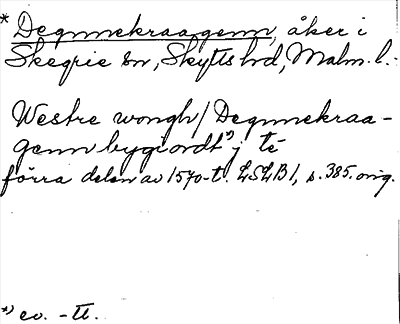 * Degnnekraagenn, åker i
Skegrie sn, Skytts hd, Malm. l.
Westre wongh / Degnnekraa-
genn bygiordt *) j té
förra delen av 1570-t. LSLB1, s. 385. orig.
*) ev. -tt.